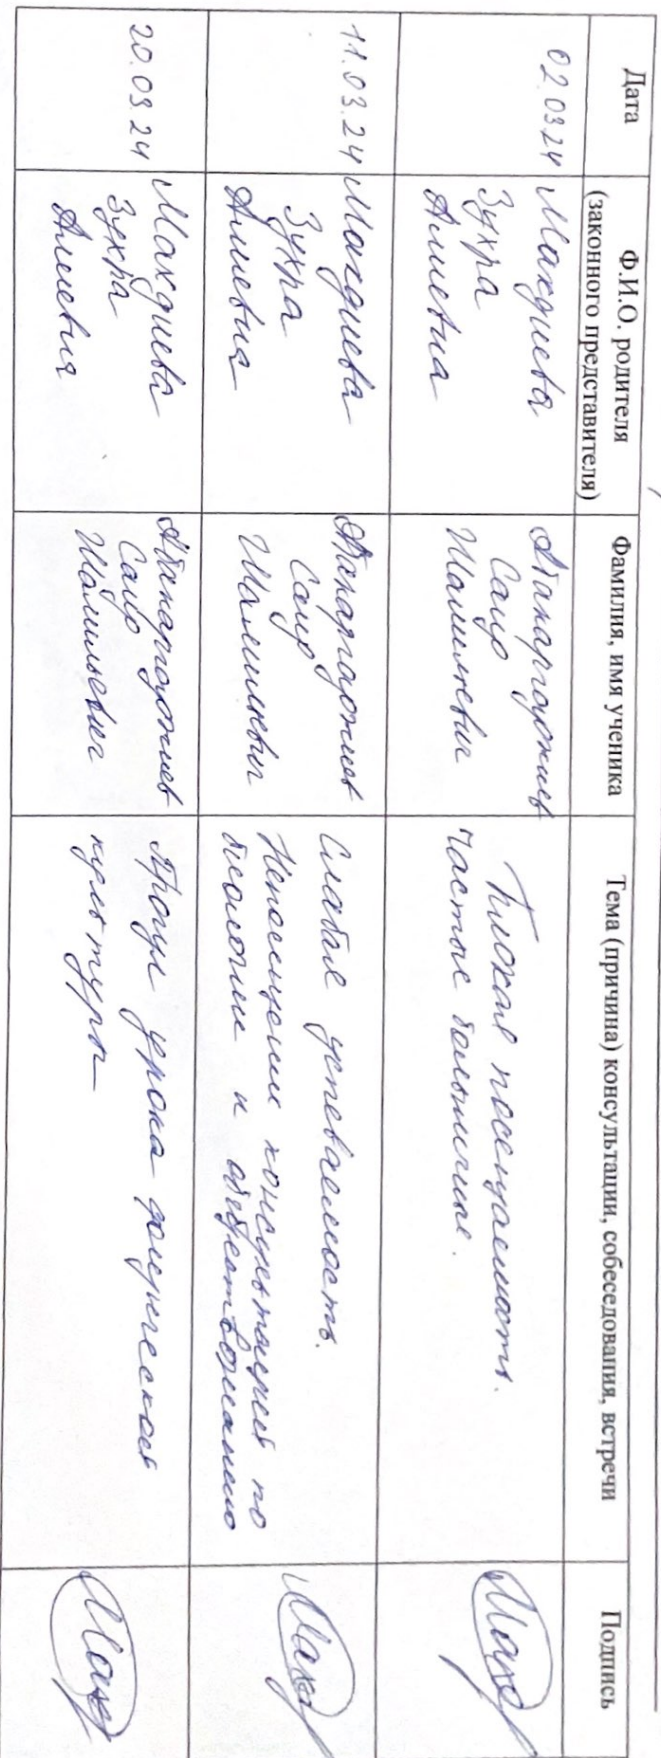 Дата
Ф.И.О. родителя
(законного представителя)
Фамилия, имя ученика
Тема (причина) консультации, собеседования, встречи
Подпись
02.03.24
Махдиева
Зухра
Алиевна
Абакаргаджиев
Саир
Шамильевич
Плохая посещаемость.
частые больничные.
Махд
11.03.24
Махдиева
Зухра
Алиевна
Абакаргаджиев
Саир
Шамильевич
Слабая успеваемость.
Непосещении консультаций по
биологии и обществознанию
Махд
20.03.24
Махдиева
Зухра
Алиевна
Абакаргаджиев
Саир
Шамильевич
Прогул урока физической
культуры
Махд